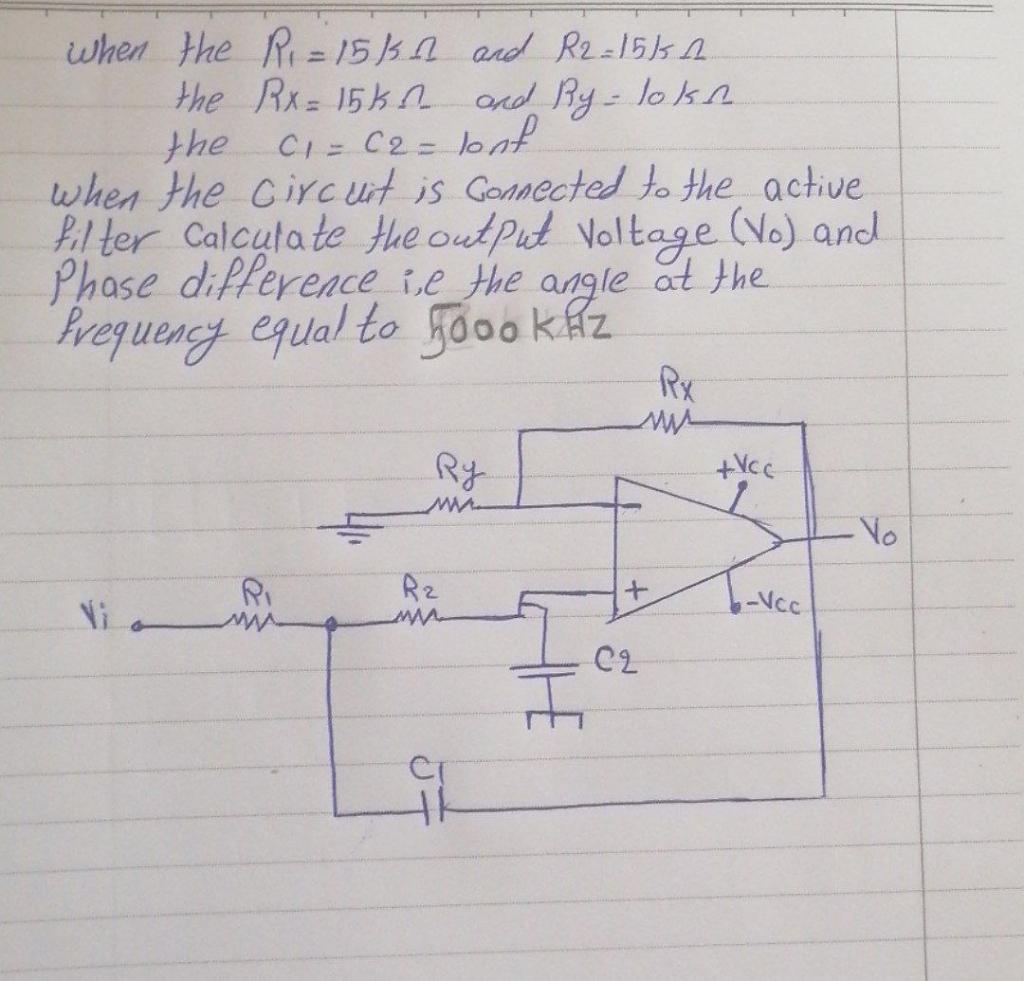 when the R1 = 15kΩ and R2=15kΩ
the Rx= 15kΩ and Ry= 10kΩ
the C1 = C2 = 10nf
when the Circuit is Connected to the active
filter Calculate the output Voltage (Vo) and
Phase difference i,e the angle at the
frequency equal to 5000 kHz
Rx
Ry
+Vcc
-
Vo
R1
R2
+
-Vcc
Vi
C2
C1